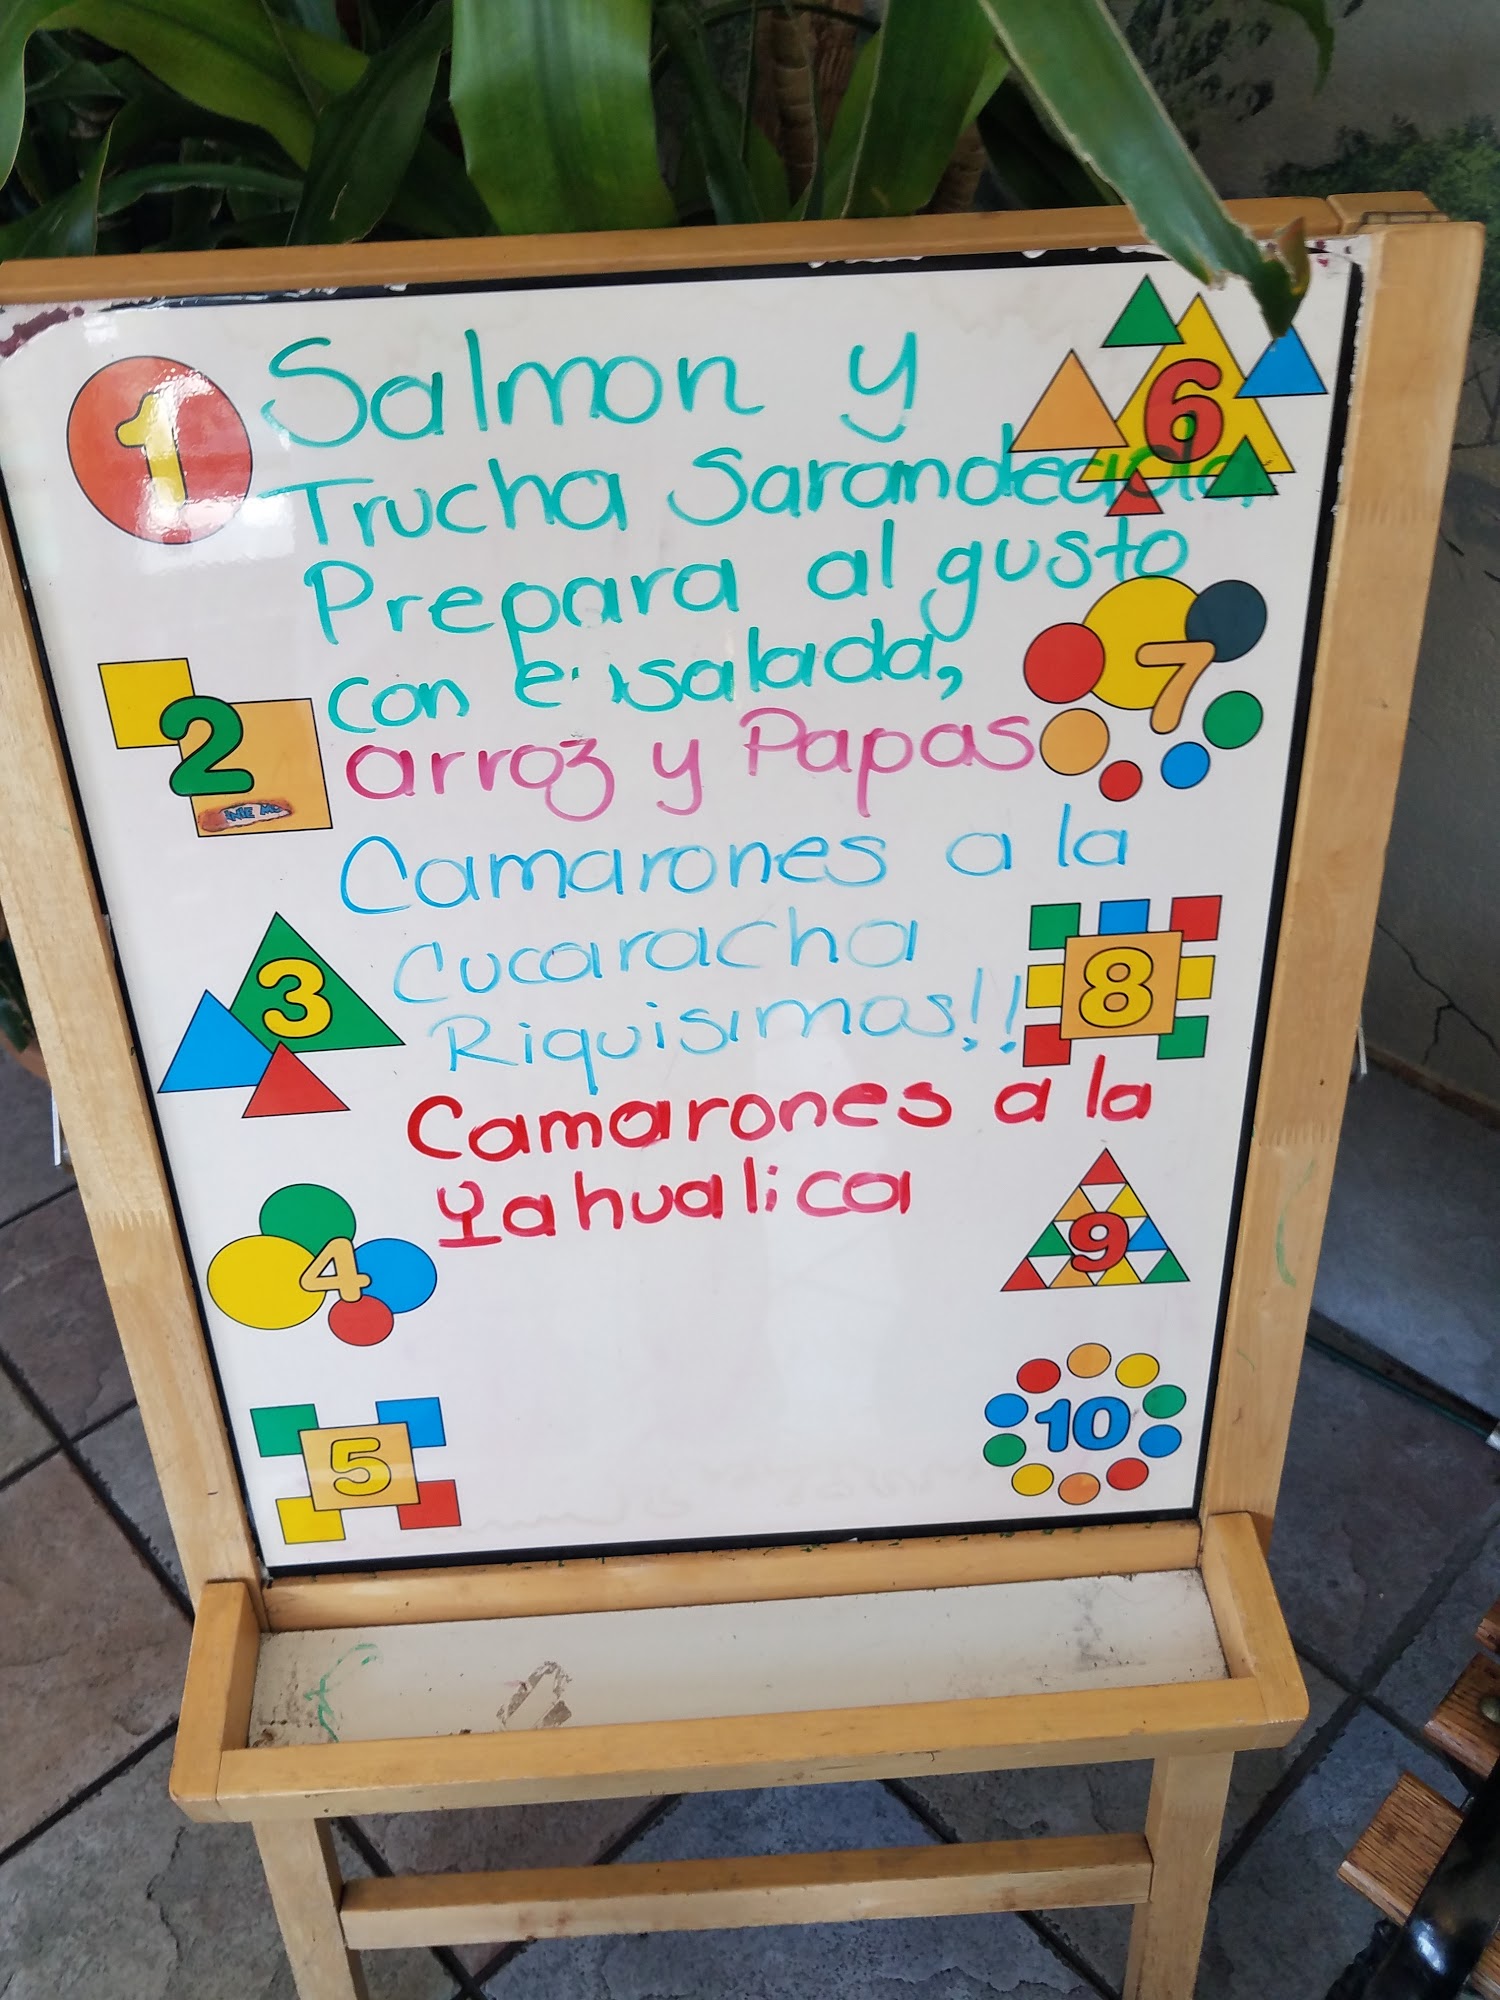 1
Salmon y
6
Trucha Sarandeada
Prepara al gusto
con ensalada,
7
2
arroz y Papas
Camarones a la
Cucaracha
8
3
Riquisimos!!
Camarones a la
Yahualica
9
4
10
5